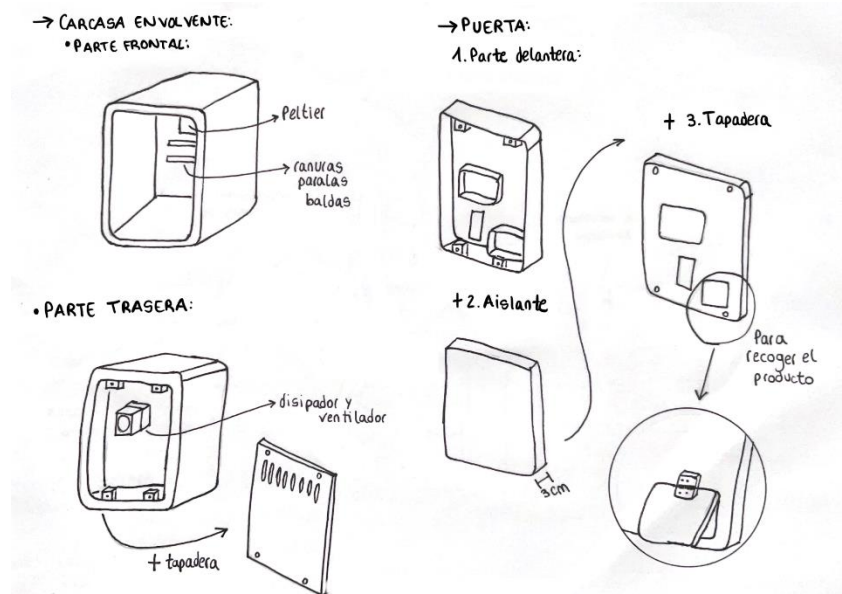 → CARCASA ENVOLVENTE:
• PARTE FRONTAL:
Peltier
ranuras
paralas
baldas
• PARTE TRASERA:
disipador y
ventilador
+ tapadera
→ PUERTA:
1. Parte delantera:
+ 2. Aislante
3cm
+ 3. Tapadera
Para
recoger el
producto